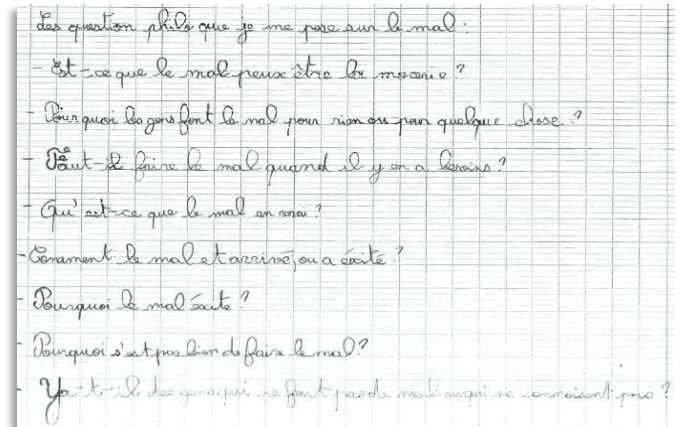 Les question philo que je me pose sur le mal :
- Est-ce que le mal peux être la
- Pourquoi les gens font le mal pour rien ou par quelque chose ?
- Faut-il faire le mal quand il y en a besoins ?
- Qu'est-ce que le mal en vrai ?
- Comment le mal et arrivé, ou a éxité ?
- Pourquoi le mal éxite ?
- Pourquoi s'est pas bien de faire le mal ?
- Ya-t-il des gens qui ne font pas de mal ou qui ne connaisent pas ?